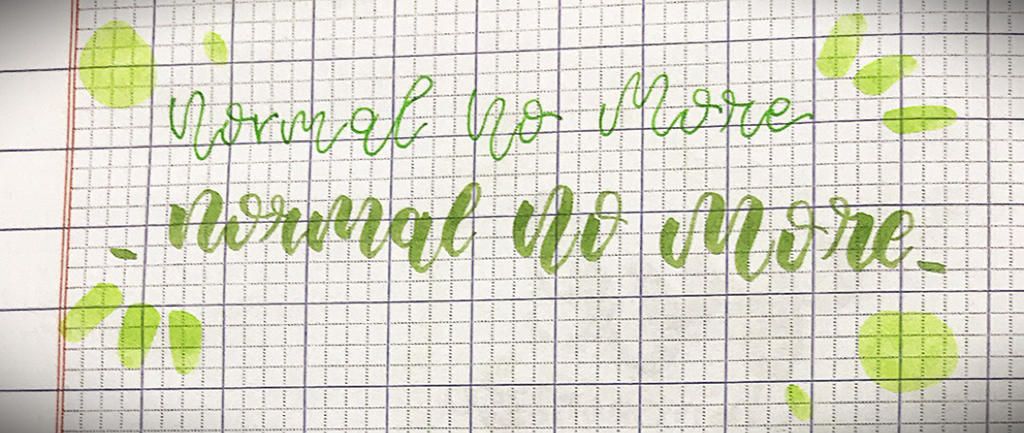 normal no more
_ normal no more _